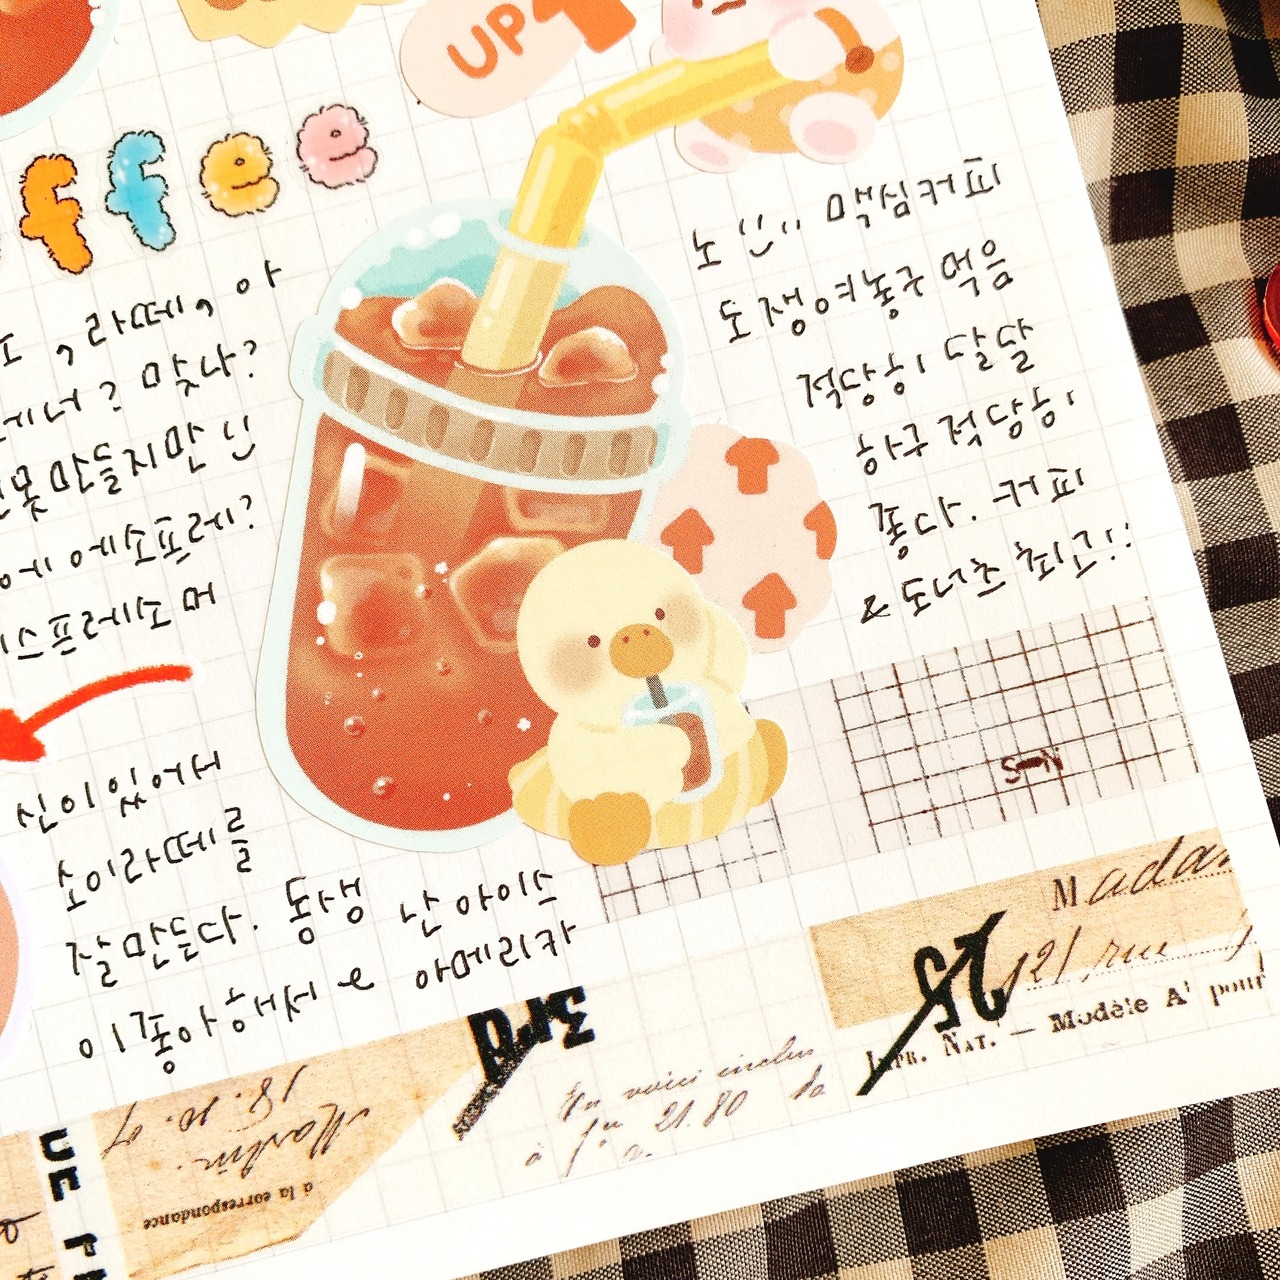 UP
ffee
, 라떼, 아
? 맞나?
못만들지만
에소프레?
스프레소 머
신이있어서
소이라떼를
잘만든다. 동생
이좋아해서
난아이스
아메리카
노 맥심커피
도쟁여놓구 먹음
적당히 달달
하구 적당히
좋다. 커피
& 도너츠 최고!!
SooN
Mada
121 rue
Impr. Nat. — Modèle A' pour
3rd
25
En voici inclus
21.80 la
18.10.
Martin.
à la correspondance
UE P